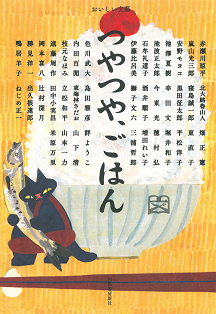 おいしい文藝
つやつや、ごはん
赤瀬川原平　北大路魯山人　畑正憲
嵐山光三郎　窪島誠一郎　東直子
安野モヨコ　黒田征太郎　平松洋子
池澤夏樹　幸田文　堀井和子
池波正太郎　今東光　穂村弘
石牟礼道子　酒井順子　増田れい子
伊藤比呂美　獅子文六　三浦哲郎
色川武大　島田雅彦　群ようこ
内田百閒　東海林さだお　山下清
枝元なほみ　立松和平　山本一力
遠藤周作　田中小実昌　米原万里
岡本喜八　辻村深月
勝見洋一　出久根達郎
鴨居羊子　ねじめ正一
河出書房新社